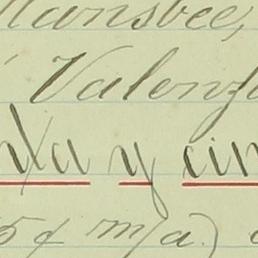 Mansbee,
Valenz
nta y cin
5¢ m/a.)